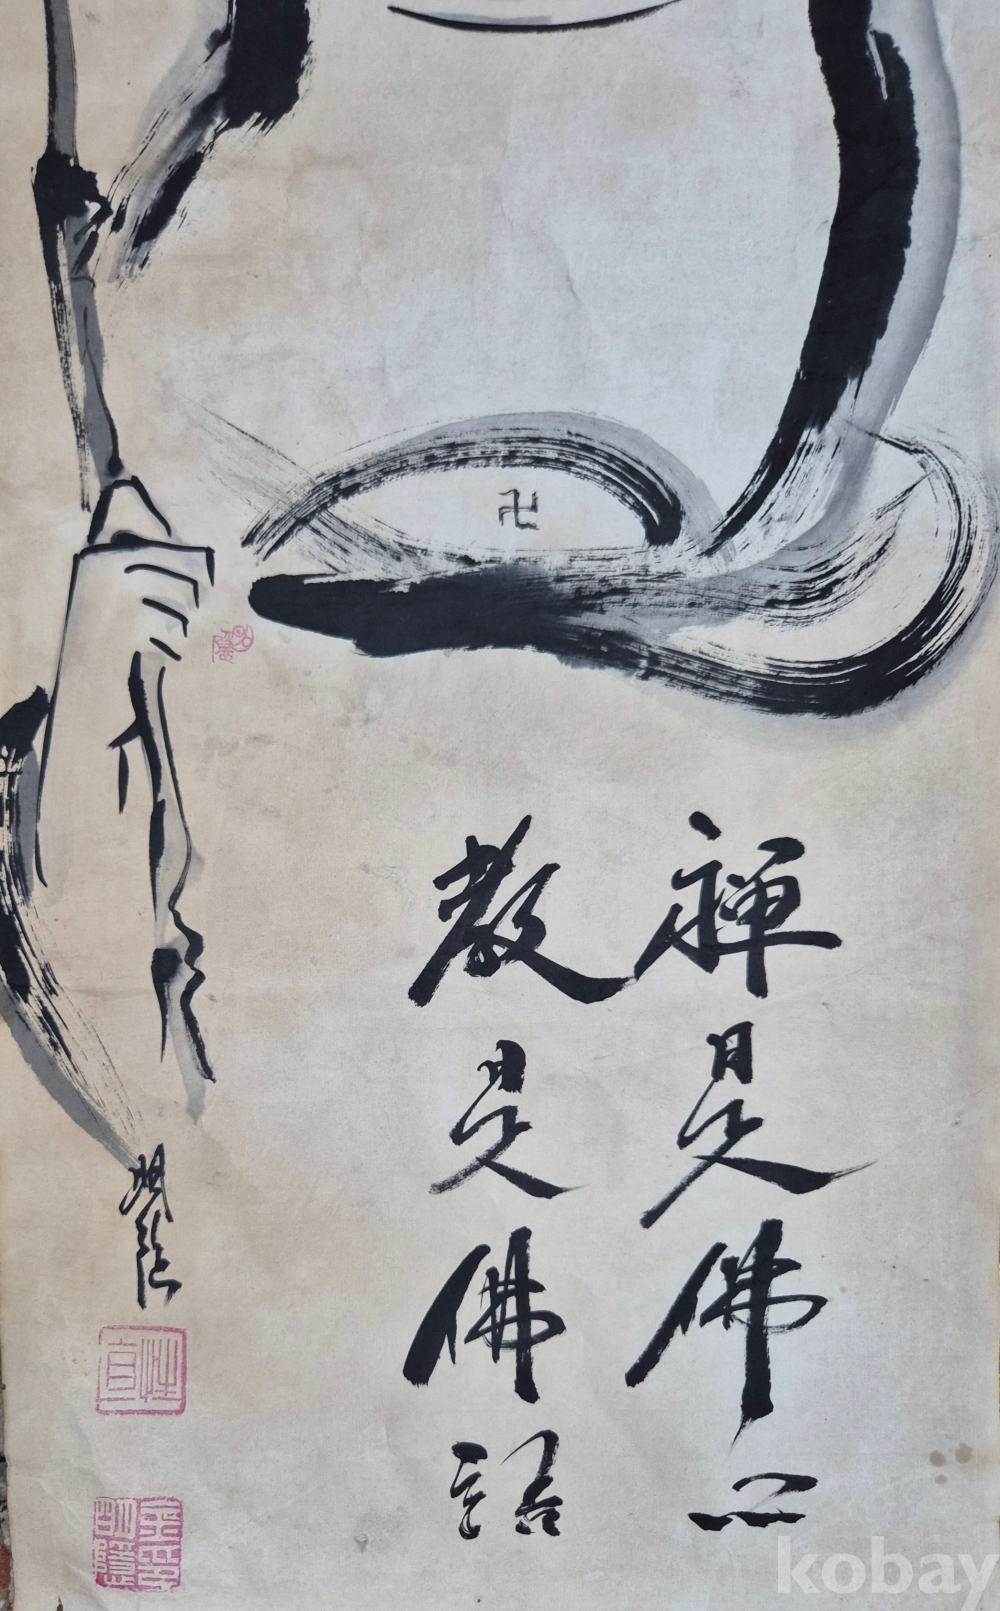 卍
禪是佛心
教是佛語
kobay